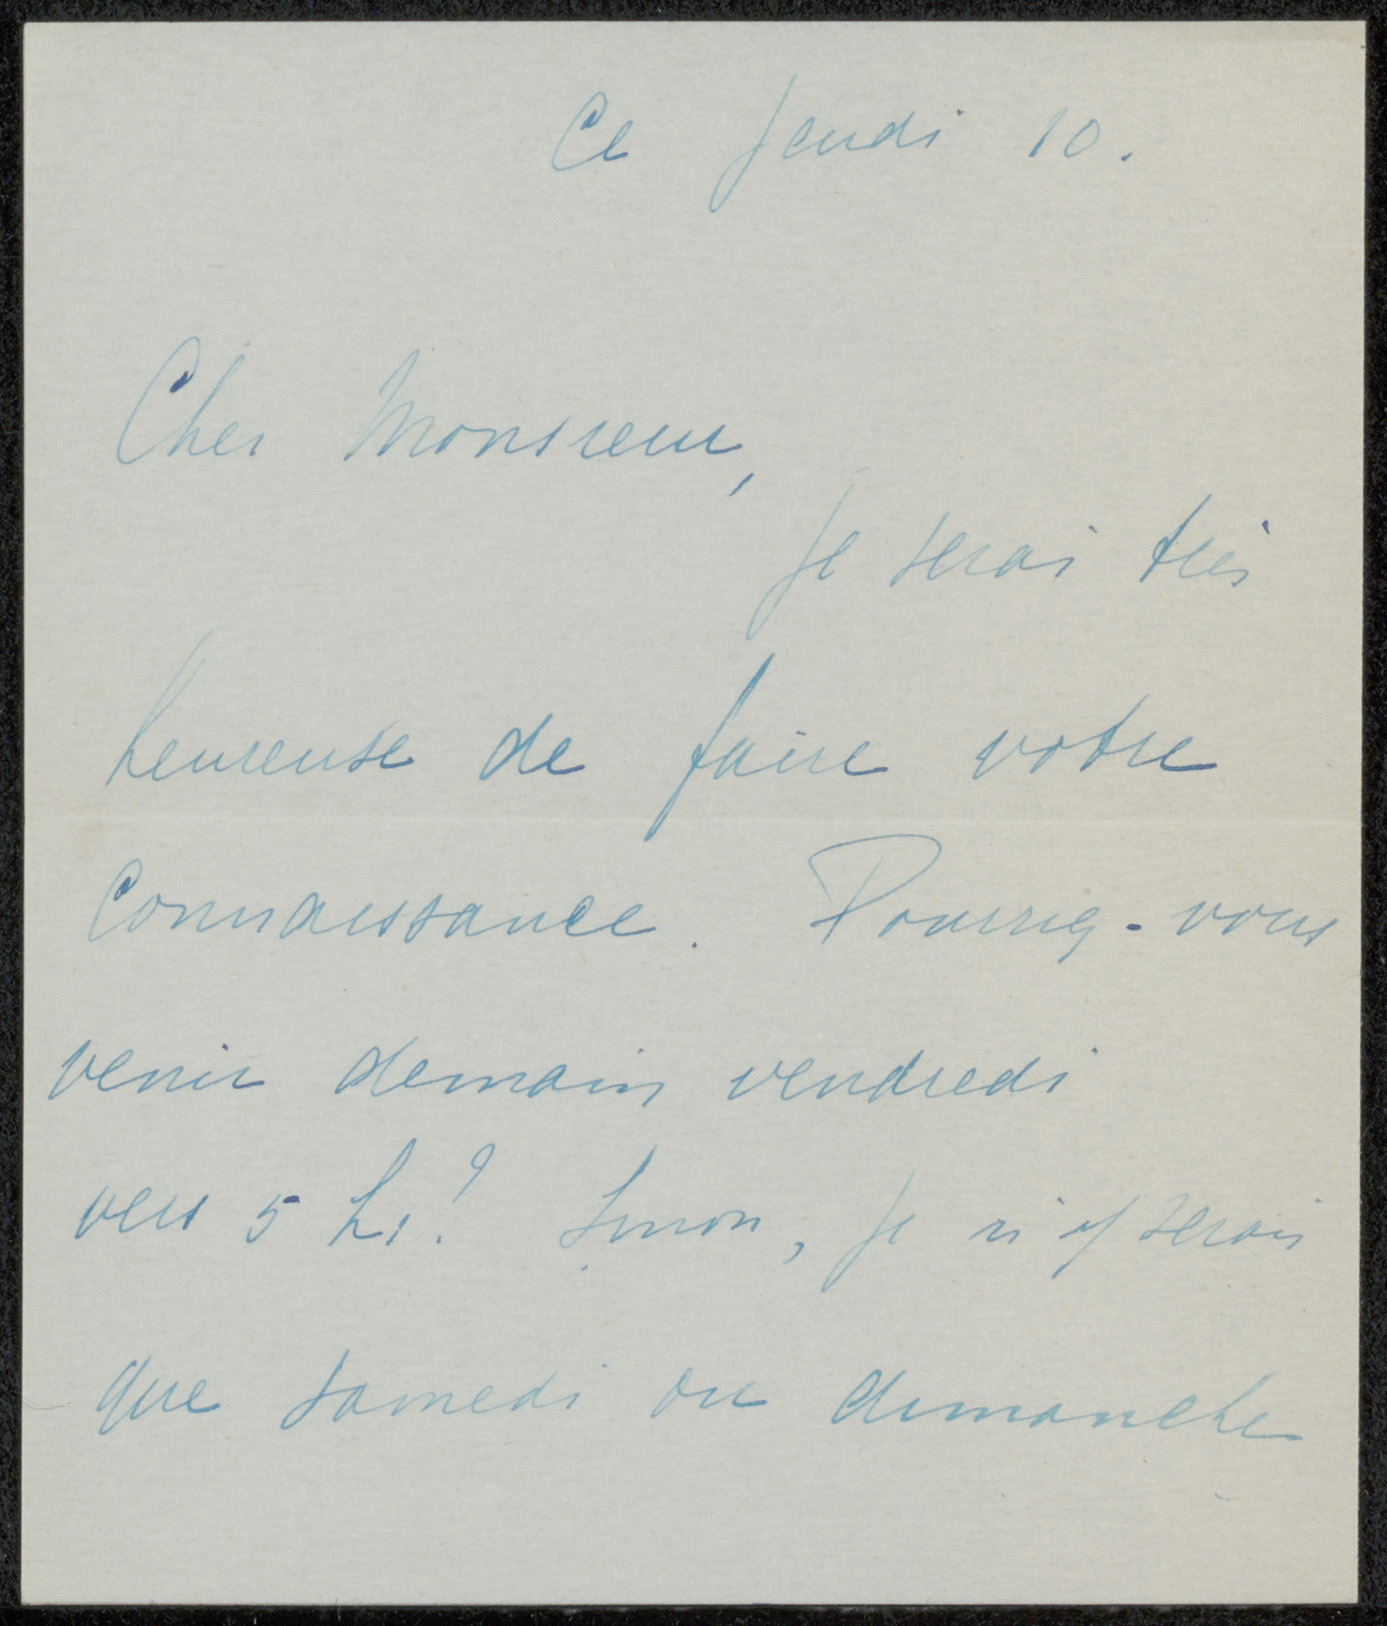 Ce jeudi 10.
Cher Monsieur,
je serai très
heureuse de faire votre
connaissance. Pourriez-vous
venir demain vendredi
vers 5 hs? Sinon, je n'y serais
que samedi ou dimanche